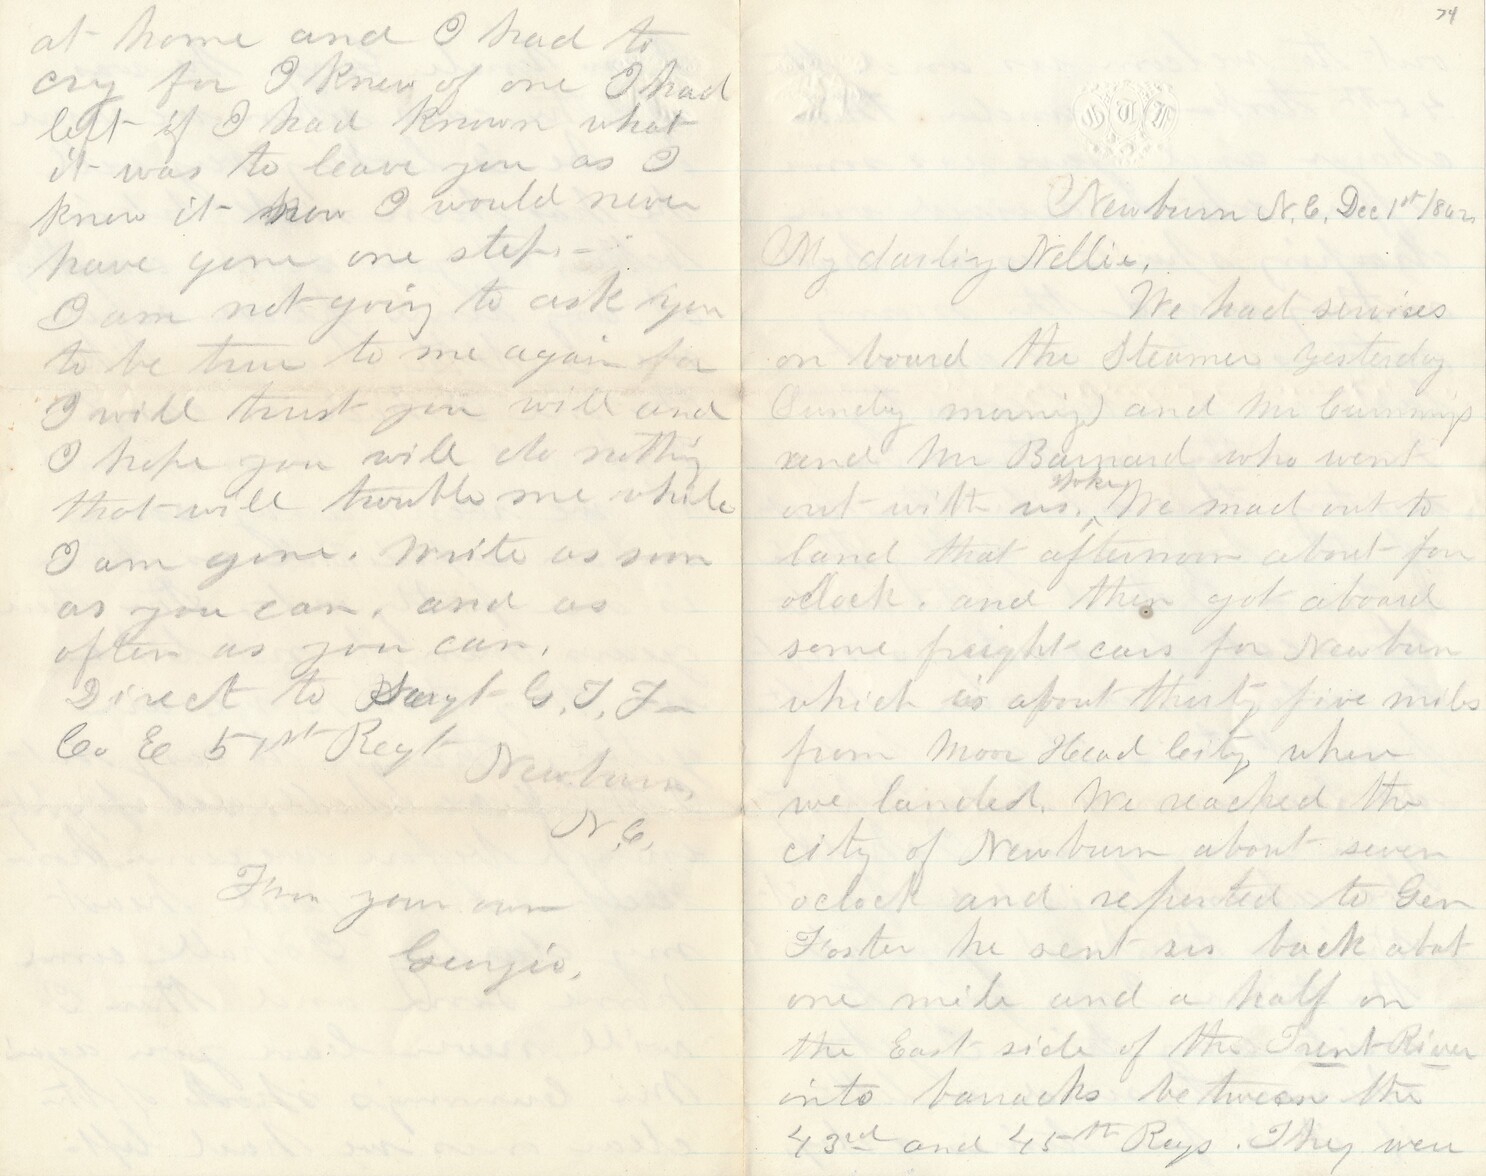 74
G T F
Newburn N.C. Dec 1st /862
My darling Nellie,
We had servises
on board the Steamer yesterday
(Sunday morning) and Mr Cummings
and Mr Barnard who went
out with us, spoke. We mad out to
land that afternoon about four
oclock. and then got aboard
some freight cars for Newburn
which is about thirty five miles
from Moor Head City, when
we landed. We reached the
city of Newburn about seven
oclock and reported to Gen
Foster he sent us back abot
one mile and a half on
the East side of the Trent River
into barracks between the
43rd and 45th Regs. They were
at home and I had to
cry for I knew of one I had
left if I had known what
it was to leave you as I
know it now I would never
have gone one step.-
I am not going to ask you
to be true to me again for
I will trust you will and
I hope you will do nothing
that will trouble me while
I am gone. Write as soon
as you can. and as
often as you can.
Direct to Sargt G. T. F-
Co E 51st Regt
Newburn,
N.C.
From your own
Georgie.